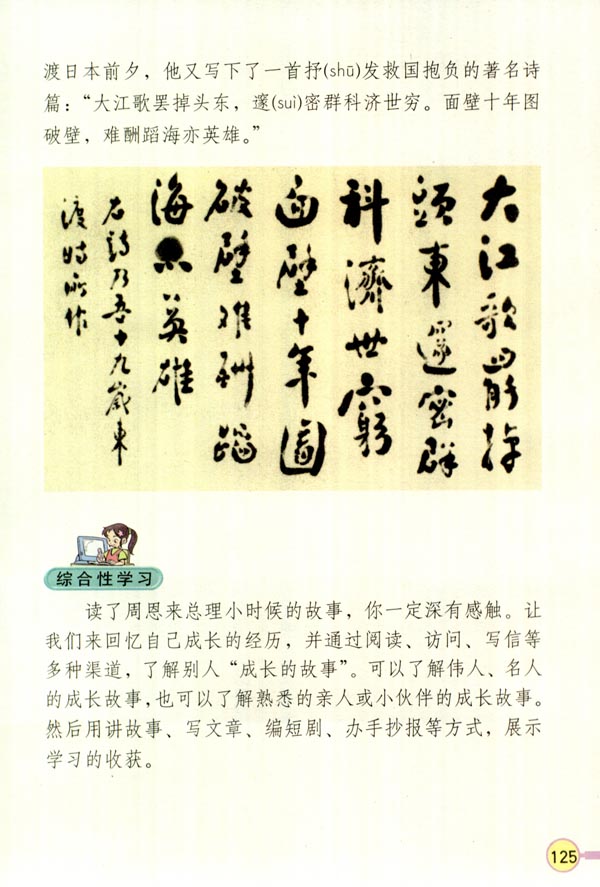 渡日本前夕，他又写下了一首抒(shū)发救国抱负的著名诗
篇：“大江歌罢掉头东，邃(suì)密群科济世穷。面壁十年图
破壁，难酬蹈海亦英雄。”
大江歌罷掉
頭東邃密群
科濟世窮
面壁十年圖
破壁难酬蹈
海亦英雄
右詩乃吾十九歲東
渡時所作
综合性学习
读了周恩来总理小时候的故事，你一定深有感触。让
我们来回忆自己成长的经历，并通过阅读、访问、写信等
多种渠道，了解别人“成长的故事”。可以了解伟人、名人
的成长故事，也可以了解熟悉的亲人或小伙伴的成长故事。
然后用讲故事、写文章、编短剧、办手抄报等方式，展示
学习的收获。
125